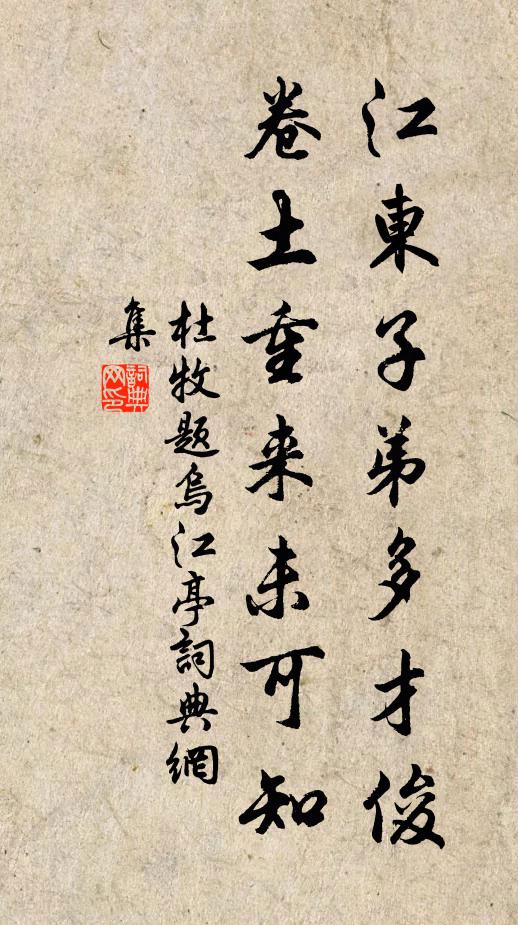 江東子弟多才俊
卷土重来未可知
杜牧题烏江亭詞典網
集
詞典
网印